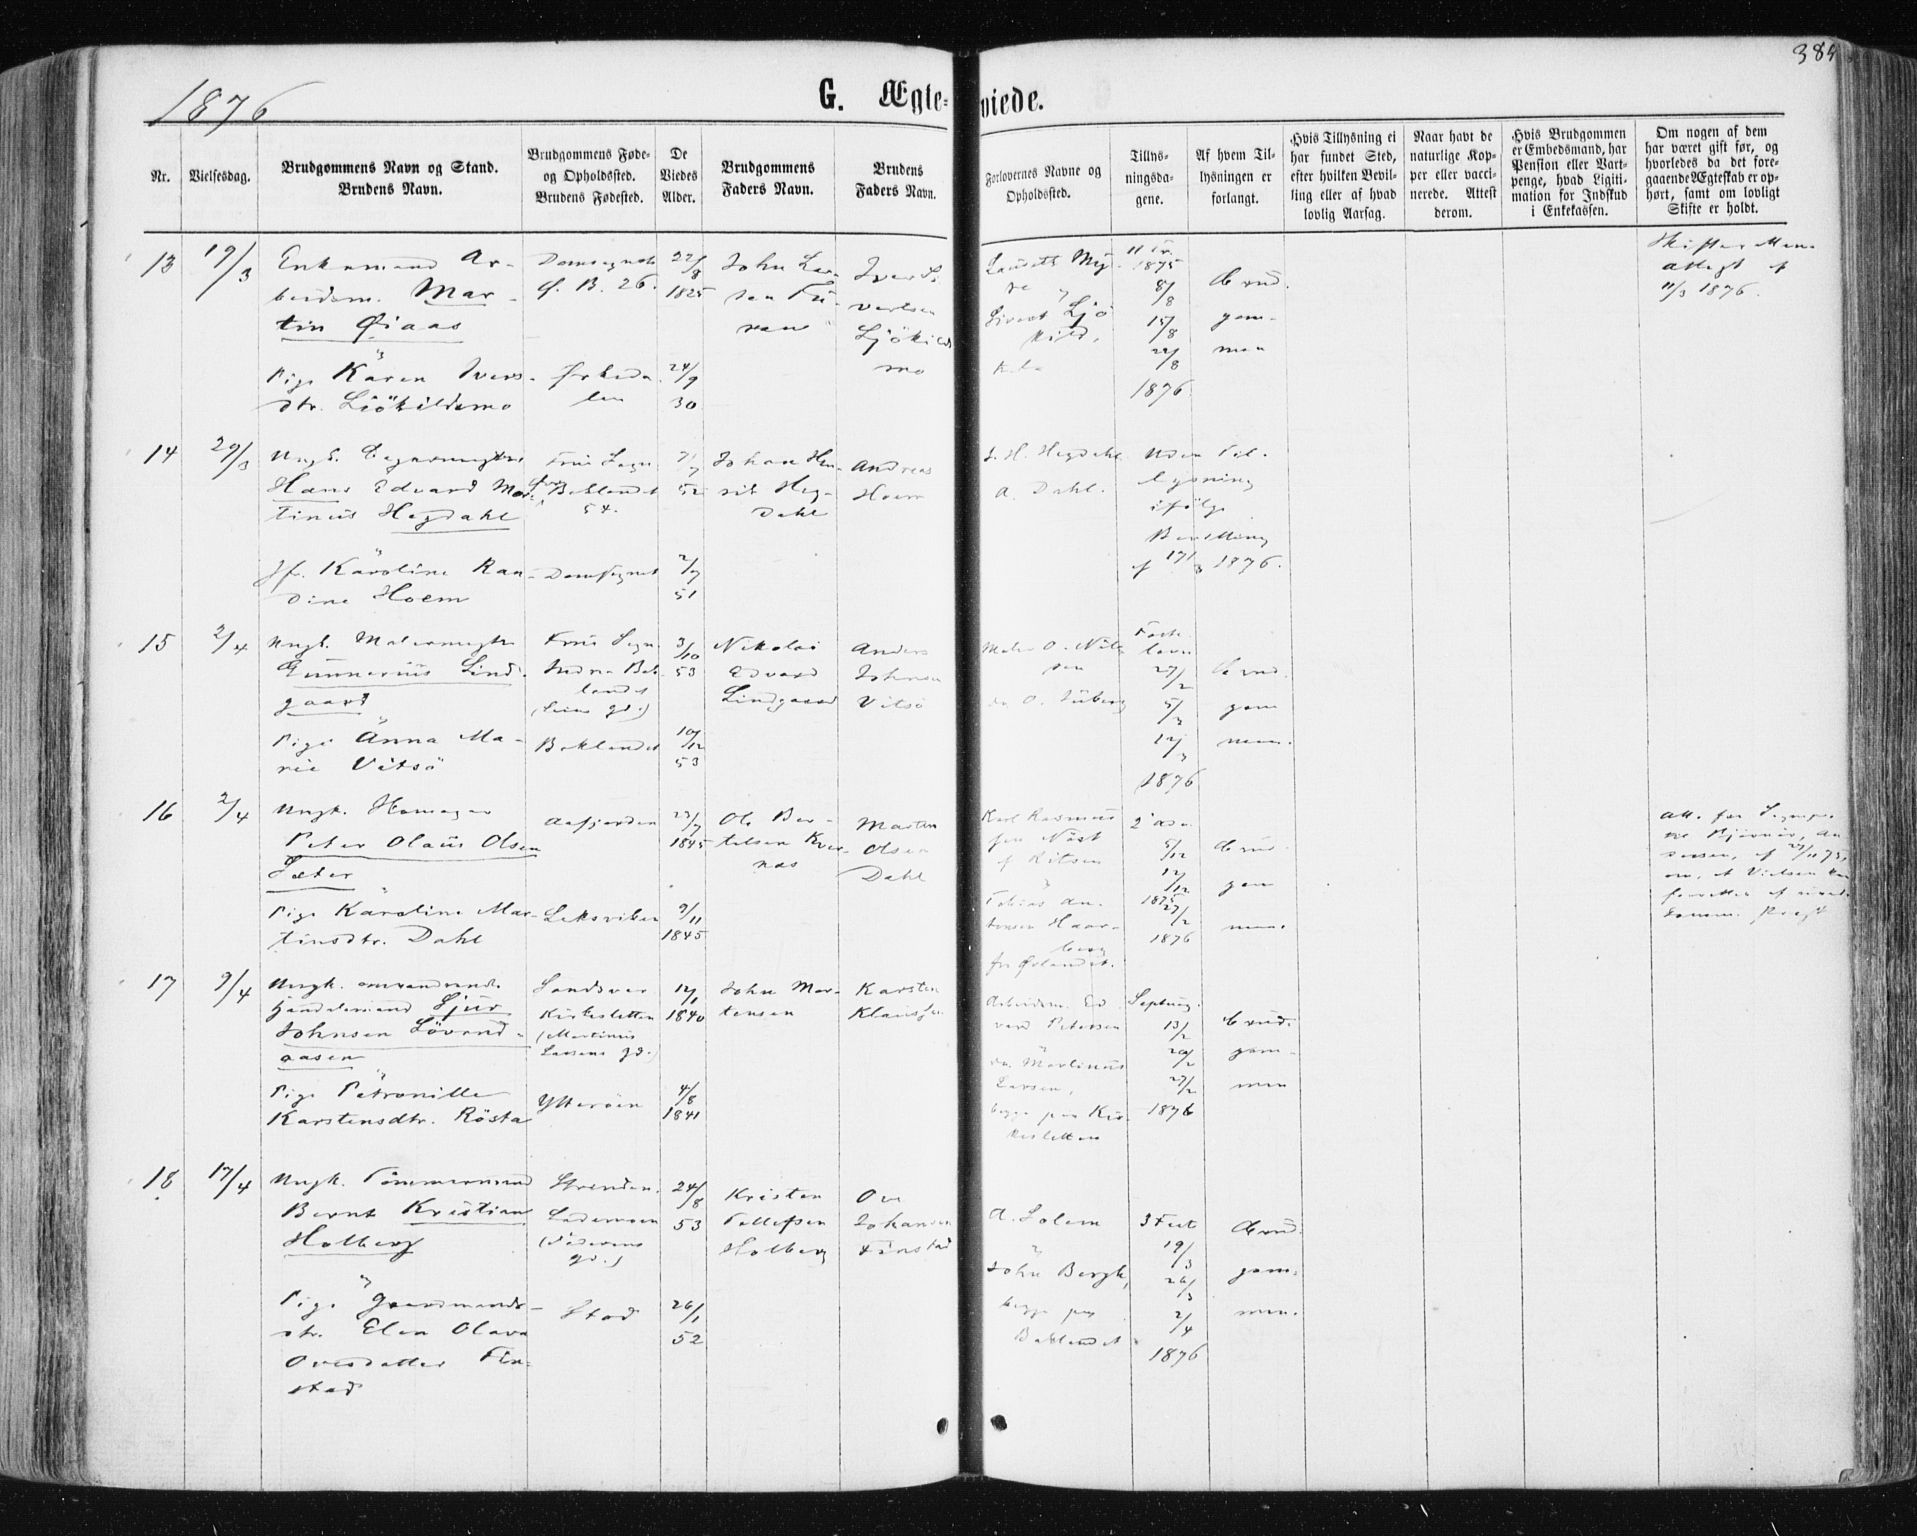 1876
G. Ægte-
viede.
384
Nr.
Vielsesdag.
Brudgommens Navn og Stand.
Brudens Navn.
Brudgommens Føde-
og Opholdssted.
Brudens Fødested.
De
Viedes
Alder.
Brudgommens
Faders Navn.
Brudens
Faders Navn.
Forlovernes Navne og
Opholdssted.
Tillys-
ningsda-
gene.
Af hvem Til-
lysningen er
forlangt.
Hvis Tillysning ei
har fundet Sted,
efter hvilken Bevil-
ling eller af hvad
lovlig Aarsag.
Naar havt de
naturlige Kop-
per eller vacci-
nerede. Attest
derom.
Hvis Brudgommen
er Embedsmand, har
Pension eller Vart-
penge, hvad Ligiti-
mation for Indskud
i Enkekassen.
Om nogen af dem
har været gift før, og
hvorledes da det fore-
gaaende Ægteskab er op-
hørt, samt om lovligt
Skifte er holdt.
13
19/3
Enkemand Ar-
beidsm. Mar-
tin Øiaas
Pige Karen Ivers-
dtr. Ljökildsmo
Domsognet
Ø. B. 26.
Orkeda-
len
22/8
1825
24/9
30
John Lar-
sen
Iver
vertsen
Ljökilds
mo
Sivert Ljö
kild,
1875
8/8
15/8
22/8
1876
Brud-
gom-
men
Skifte
attest af
11/3 1876.
14
29/3
Ungk.
Hans Edvard Mar-
tinus Hegdahl
Jfr. Karoline Ran-
dine Hoem
Frue Sogn
Baklandet
54.
Domsognet
52
2/7
51
Johan Hen-
rik Heg-
dahl
Andreas
Hoem
J. H. Hegdahl
A. Dahl.
Uden Til-
lysning
ifölge
Bevilling
af 17/3 1876.
15
2/4
Ungk. Malersvend
Gunnerius Lind-
gaard
Pige Anna Ma-
rie Vitsö
Frue Sogn
Indre Bak-
landet
Baklandet
3/10
53
10/12
53
Nikolai
Edvard
Lindgaard
Anders
Johnsen
Vitsö
Maler O. Nil-
sen
Faste-
lavn
27/2
5/3
12/3
1876
Brud-
gom
men.
16
2/4
Ungk.
Peter Olaus Olsen
Sæter
Pige Karoline Mar-
tinsdtr. Dahl
Aafjorden
Leksviken
23/7
1845
9/11
1845
Ole Ber-
telsen Kver-
nes
Morten
Olsen
Dahl
Karl Rasmus
sen
Tobias An-
tonsen Haar-
berg
fr. Ørlandet.
5/12
12/12
1875
27/2
1876
Brud-
gom
men.
17
9/4
Ungk. omvandrende
Handelsmand Sjur
Johnsen Lövend-
aasen
Pige Petronille
Karstensdtr. Rösta
Sandsvær
Kirkesletten
(Martinus
Larsens gd.)
Ytteröen
12/1
1840
4/8
1841
John Mor-
tensen
Karsten
Klausen
Arbeidsm. Ed-
vard Petersen
do. Martinus
Larsen,
begge paa Kir-
kesletten
Septuag.
13/2
20/2
27/2
1876
Brud-
gom-
men
18
17/4
Ungk. Tömmermand
Bernt Kristian
Holberg
Pige Gaardmands-
dtr. Elen Olava
Ovesdatter Fin-
stad
Strinden.
Lademoen
gd.)
Stod
24/8
53
26/1
52
Kristen
Tollefsen
Holberg
Ove
Johansen
Finstad
A. Solem
John Bergh,
begge paa
Baklandet
3 Fast.
19/3
26/3
2/4
1876
Brud-
gom-
men.